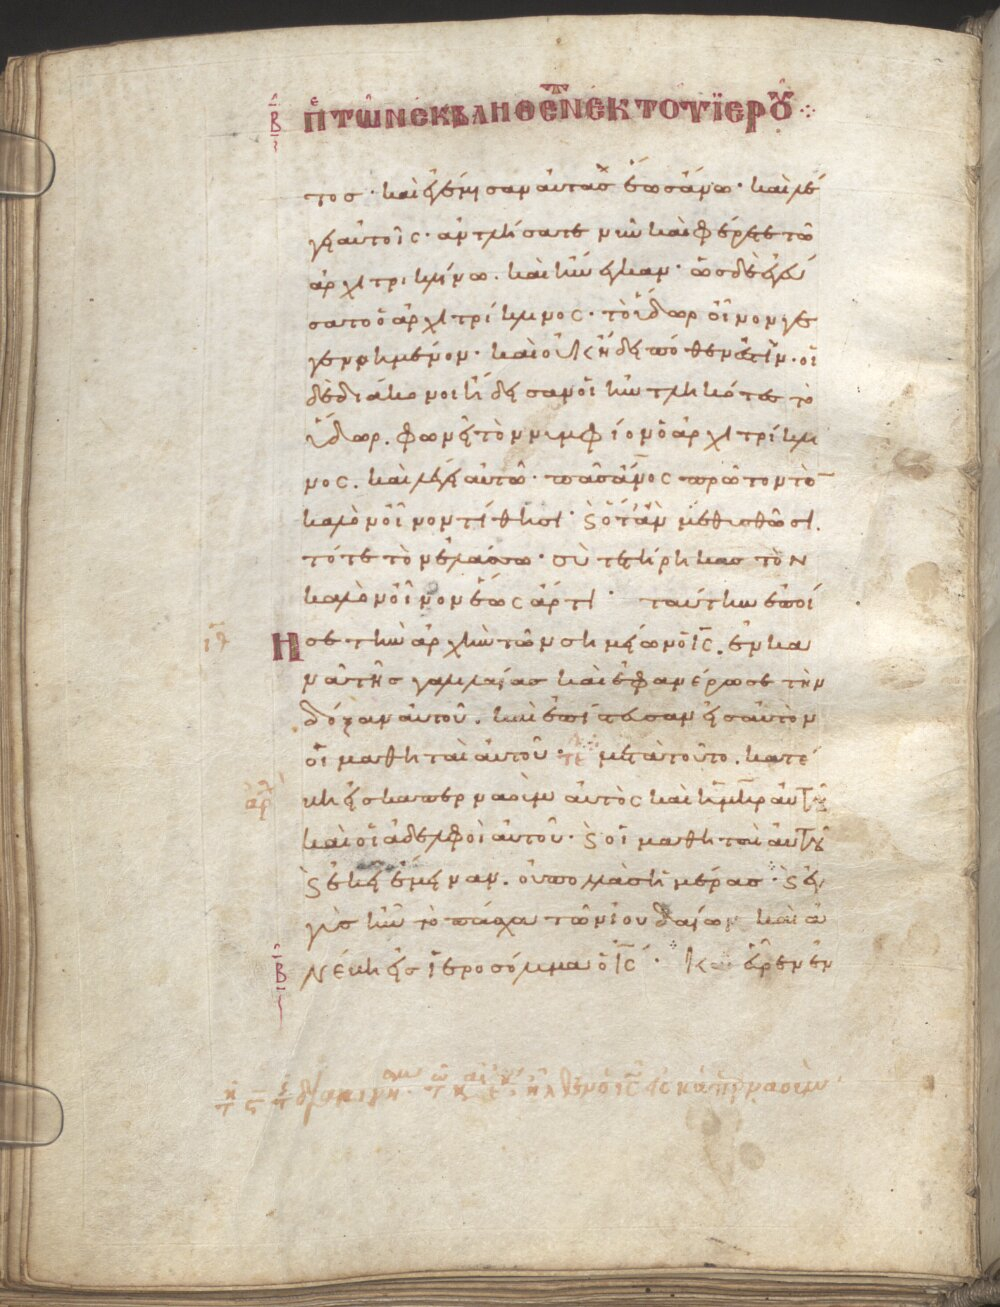 β πε τῶν ἐκβληθέντων ἐκ τοῦ ἱεροῦ
τος· καὶ ἐγέμησαν αὐτὰς ἕως ἄνω· καὶ λέ
γει αὐτοῖς· ἀντλήσατε νῦν καὶ φέρετε τῷ
ἀρχιτρικλίνω. καὶ ἤνεγκαν· ὡς δὲ ἐγεύ
σατο ὁ ἀρχιτρίκλινος· τὸ ὕδωρ οἶνον γε
γενημένον· καὶ οὐκ ἤδει πόθεν ἐστίν. οἱ
δὲ διάκονοι ἤδεισαν οἱ ἠντληκότες τὸ
ὕδωρ. φωνεῖ τὸν νυμφίον ὁ ἀρχιτρίκλι
νος. καὶ λέγει αὐτῶ· πᾶς ἄνος πρῶτον τὸ
καλὸν οἶνον τίθησι· ϗ ὅταν μεθυσθῶσι.
τότε τὸν ἐλάσσω· σὺ τετήρηκας τὸν
καλὸν οἶνον ἕως ἄρτι· ταύτην ἐποί
Ησε τὴν ἀρχὴν τῶν σημείων ὁ ις. ἐν κα
νᾶ τῆς γαλιλαίας καὶ ἐφανέρωσε τὴν
δόξαν αὐτοῦ. καὶ ἐπίστευσαν εἰς αὐτὸν
οἱ μαθηταὶ αὐτοῦ· τε μετὰ τοῦτο. κατέ
βη εἰς καπερναοὺμ αὐτὸς καὶ ἡ μηρ αὐτοῦ
καὶ οἱ ἀδελφοὶ αὐτοῦ· ϗ οἱ μαθηταὶ αὐτοῦ
ϗ ἐκεῖ ἔμειναν. οὐ πολλὰς ἡμέρας· ϗ ἐγ
γὺς ἦν τὸ πάσχα τῶν ἰουδαίων καὶ ἀ
νέβη εἰς ἱεροσόλυμα ὁ ις· Καὶ εὗρεν ἐν